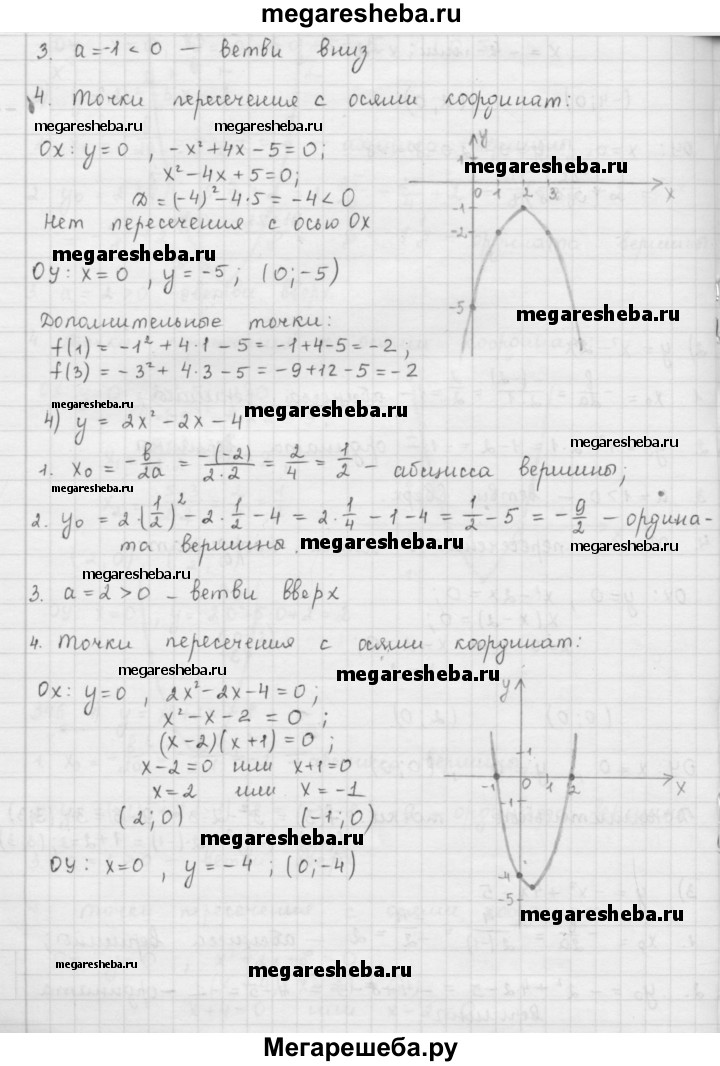 megaresheba.ru
3. a = -1 < 0 — ветви вниз
4. Точки пересечения с осями координат:
megaresheba.ru megaresheba.ru
Ox: y=0 , -x²+4x-5=0;
x²-4x+5=0;
D=(-4)²-4·5=-4<0
Нет пересечения с осью Ox
megaresheba.ru
OY: x=0 , y=-5; (0;-5)
Дополнительные точки:
f(1) = -1² + 4·1 - 5 = -1+4-5 = -2;
f(3) = -3² + 4·3 - 5 = -9+12-5 = -2
y
megaresheba.ru
0 1 2 3 x
-1
-2
-5
megaresheba.ru
megaresheba.ru megaresheba.ru
4) y = 2x² - 2x - 4
megaresheba.ru
1. x₀ = -b/2a = -(-2)/2·2 = 2/4 = 1/2 - абсцисса вершины;
megaresheba.ru
2. y₀ = 2·(1/2)² - 2·1/2 - 4 = 2·1/4 - 1 - 4 = 1/2 - 5 = -9/2 — ордина-
та вершины.
megaresheba.ru megaresheba.ru
megaresheba.ru
3. a = 2 > 0 - ветви вверх
4. Точки пересечения с осями координат:
megaresheba.ru megaresheba.ru
Ox: y=0 , 2x²-2x-4=0;
x²-x-2 = 0 ;
(x-2)(x+1) = 0 ;
x-2=0 или x+1=0
x=2 или x=-1
(2;0) (-1;0)
megaresheba.ru
OY: x=0 , y=-4 ; (0;-4)
y
1
-1 0 1 2 x
-1
-4
-5
megaresheba.ru
megaresheba.ru megaresheba.ru
Мегарешеба.ру